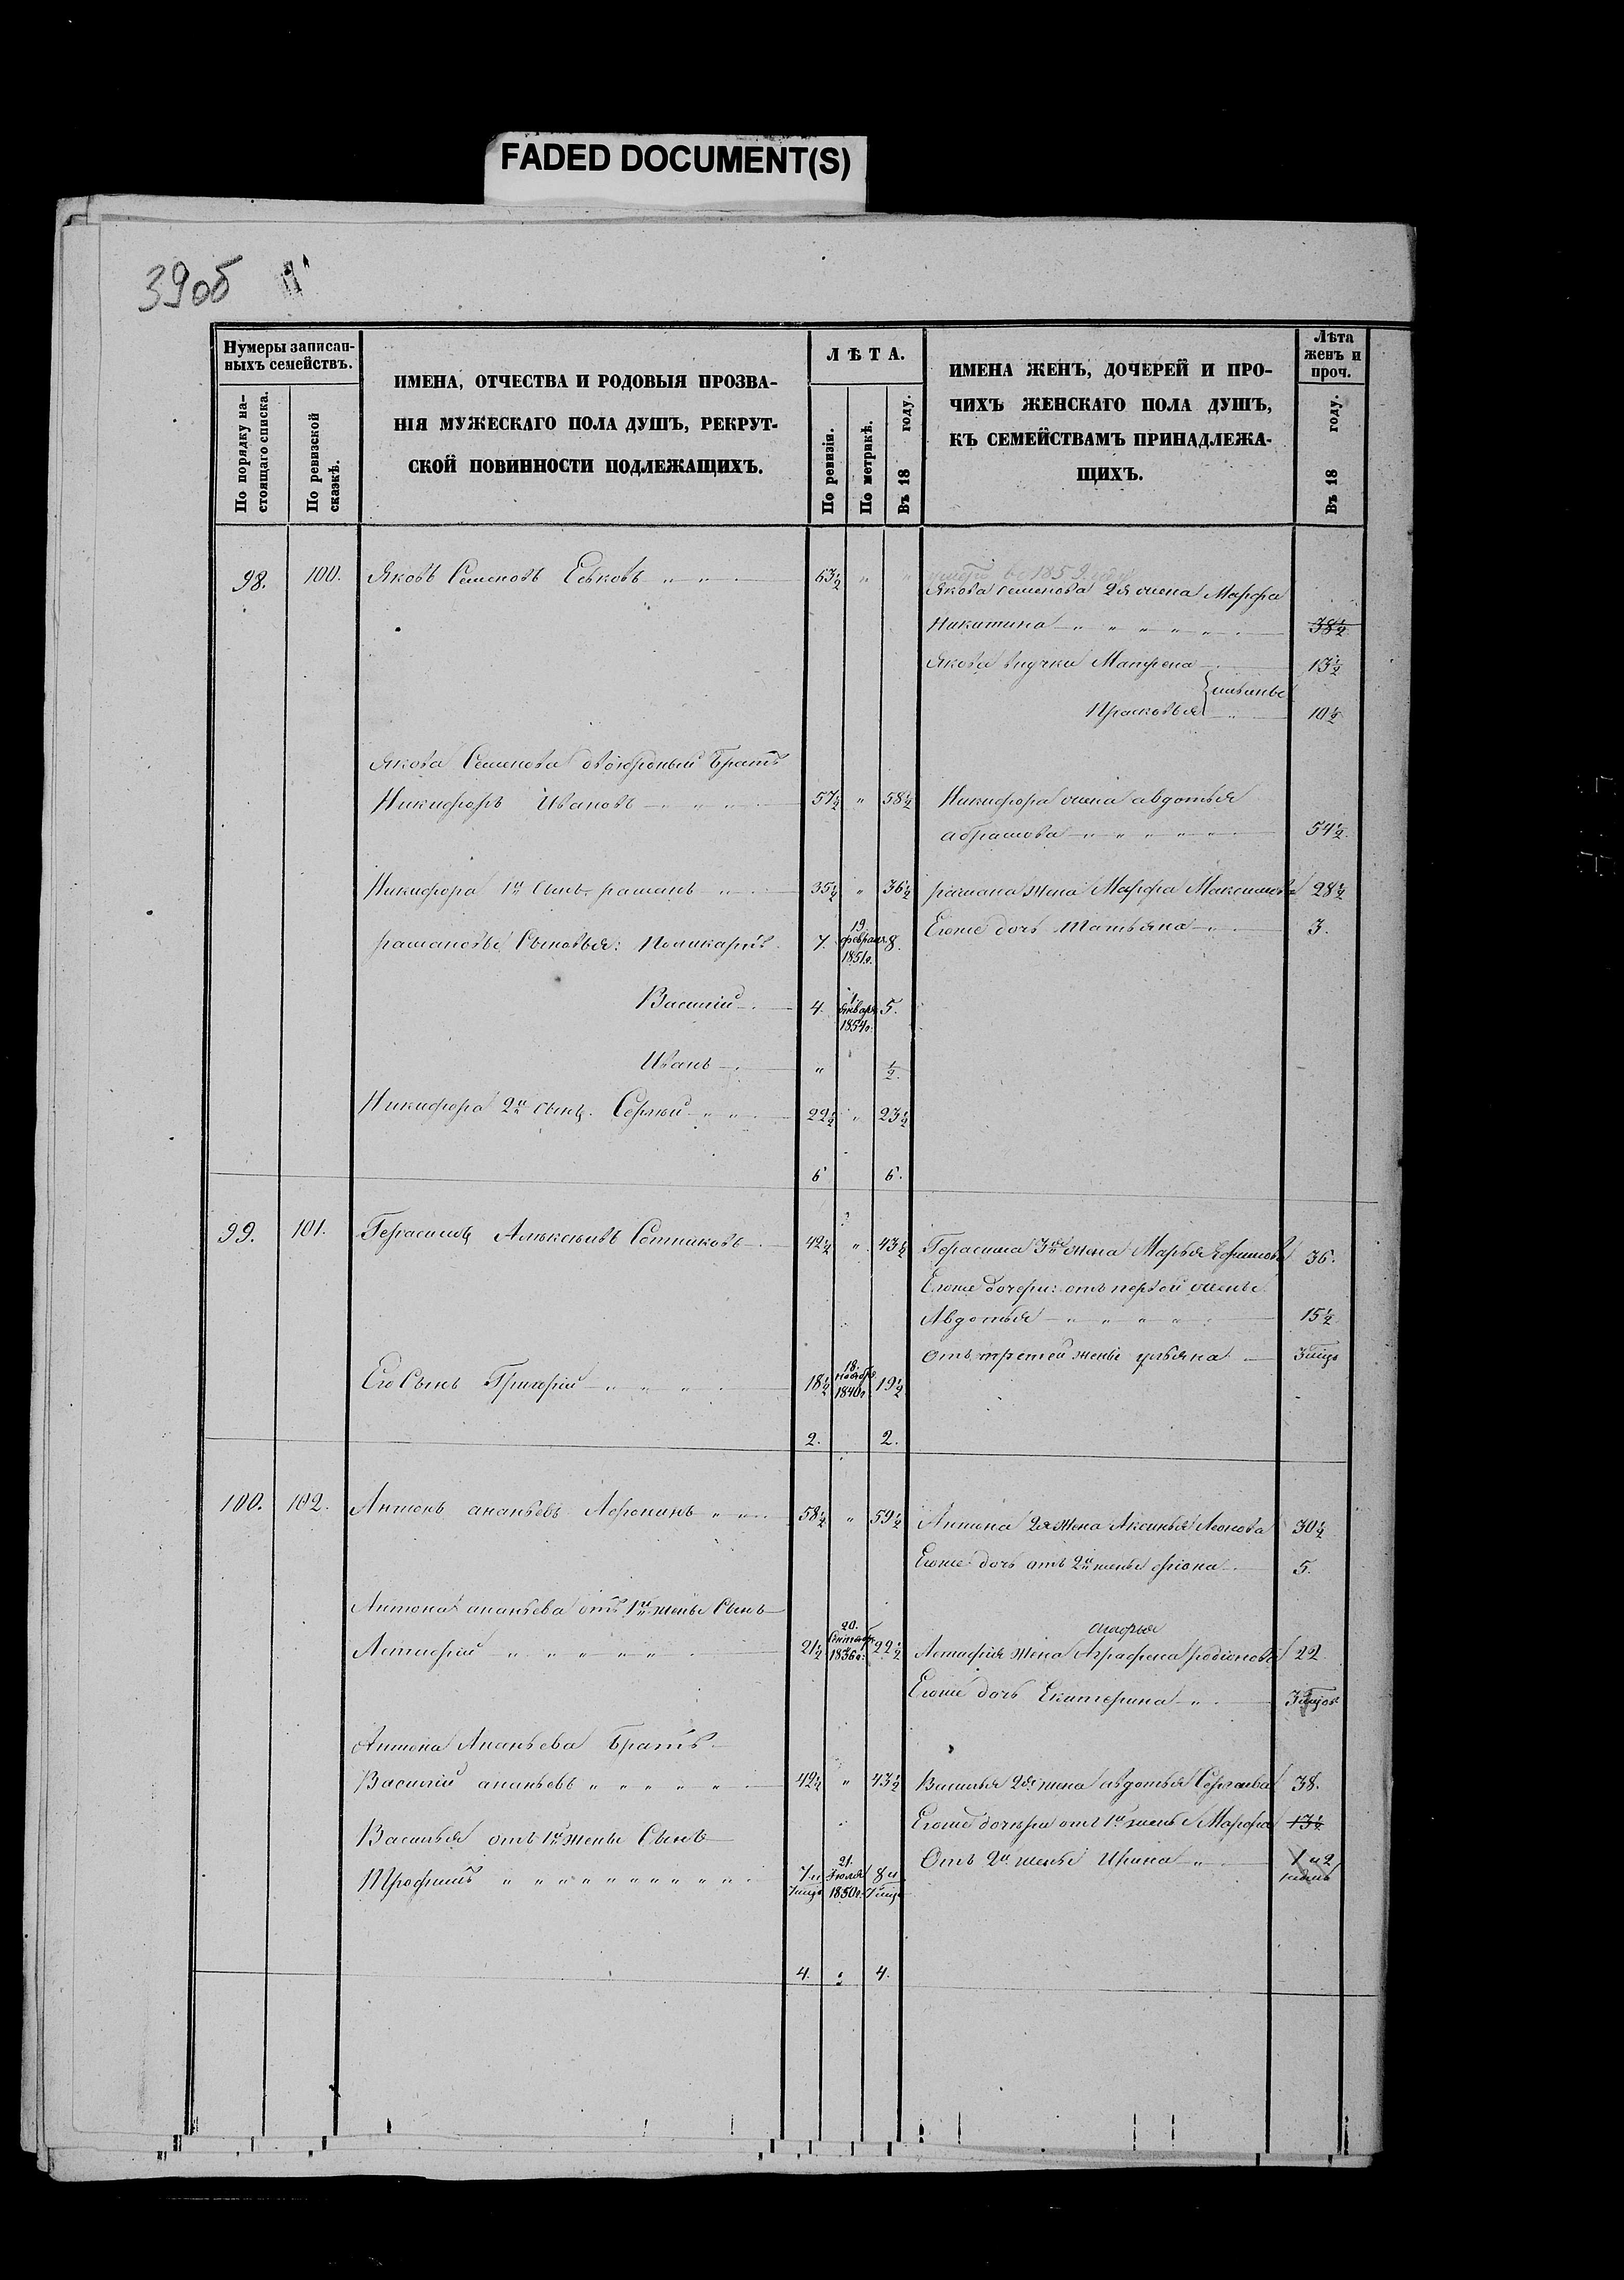 FADED DOCUMENT(S)
39об
Нумеры записан-
ныхъ семействъ.
По порядку на-
стоящаго списка.
По ревизской
сказкѣ.
ИМЕНА, ОТЧЕСТВА И РОДОВЫЯ ПРОЗВА-
НІЯ МУЖЕСКАГО ПОЛА ДУШЪ, РЕКРУТ-
СКОЙ ПОВИННОСТИ ПОДЛЕЖАЩИХЪ.
ЛѢТА.
По ревизіи.
По метрикѣ.
Въ 18 году.
ИМЕНА ЖЕНЪ, ДОЧЕРЕЙ И ПРО-
ЧИХЪ ЖЕНСКАГО ПОЛА ДУШЪ,
КЪ СЕМЕЙСТВАМЪ ПРИНАДЛЕЖА-
ЩИХЪ.
Лѣта
женъ и
проч.
Въ 18 году.
98. 100. Яковъ Семеновъ Евковъ 63½ " "
Якова Семенова 2я жена Марфа
Никитина 38½
Якова внучки Матрена 13½
Прасковья 10½
Якова Семенова двоюродный Братъ
Никифоръ Ивановъ 57½ " 58½ Никифора жена авдотья
абрамова 54½
Никифора 1й Сынъ рамань 35½ " 36½ рамана жена Марфа Максимова 28½
рамановы Сыновья: Поликарпъ 7. 19. февраля 1851г. 8. Егоже дочь Татьяна 3.
Василій 4. 1. Января 1854г. 5.
Иванъ " ½
Никифора 2й сынъ. Сергей 22½ " 23½
6 6.
99. 101. Герасимъ Алексеевъ Сотниковъ 42½ " 43½ Герасима 3я жена Марья Ефимова 36.
Егоже дочери: отъ первой жены
Авдотья 15½
отъ третей жены ульяна 3 мцъ
Его Сынъ Григорій 18½ 18. ноября 1840г. 19½
2. 2.
100. 102. Антонъ ананьевъ Афонинъ 58½ " 59½ Антона 2я жена Аксинья Леонова 30½
Егоже дочь отъ 2й жены 5.
Антона ананьева отъ 1й жены Сынъ
Астафій 21½ 20. Сентября 1836г. 22½ Астафія жена Аграфена родіонова 22
Егоже дочь Екатерина 3 мцов
Антона Ананьева Братъ
Василій ананьевъ 42½ " 43½ Василья 2я жена авдотья Сергаева 38.
Василья отъ 1й жены Сынъ Егоже дочери отъ 1й жены Марфа 13½
Трофимъ 7 и 7 мцъ 21. Іюля 1850г. 8 и 7 мцъ Отъ 2й жены Ирина
4. 4.